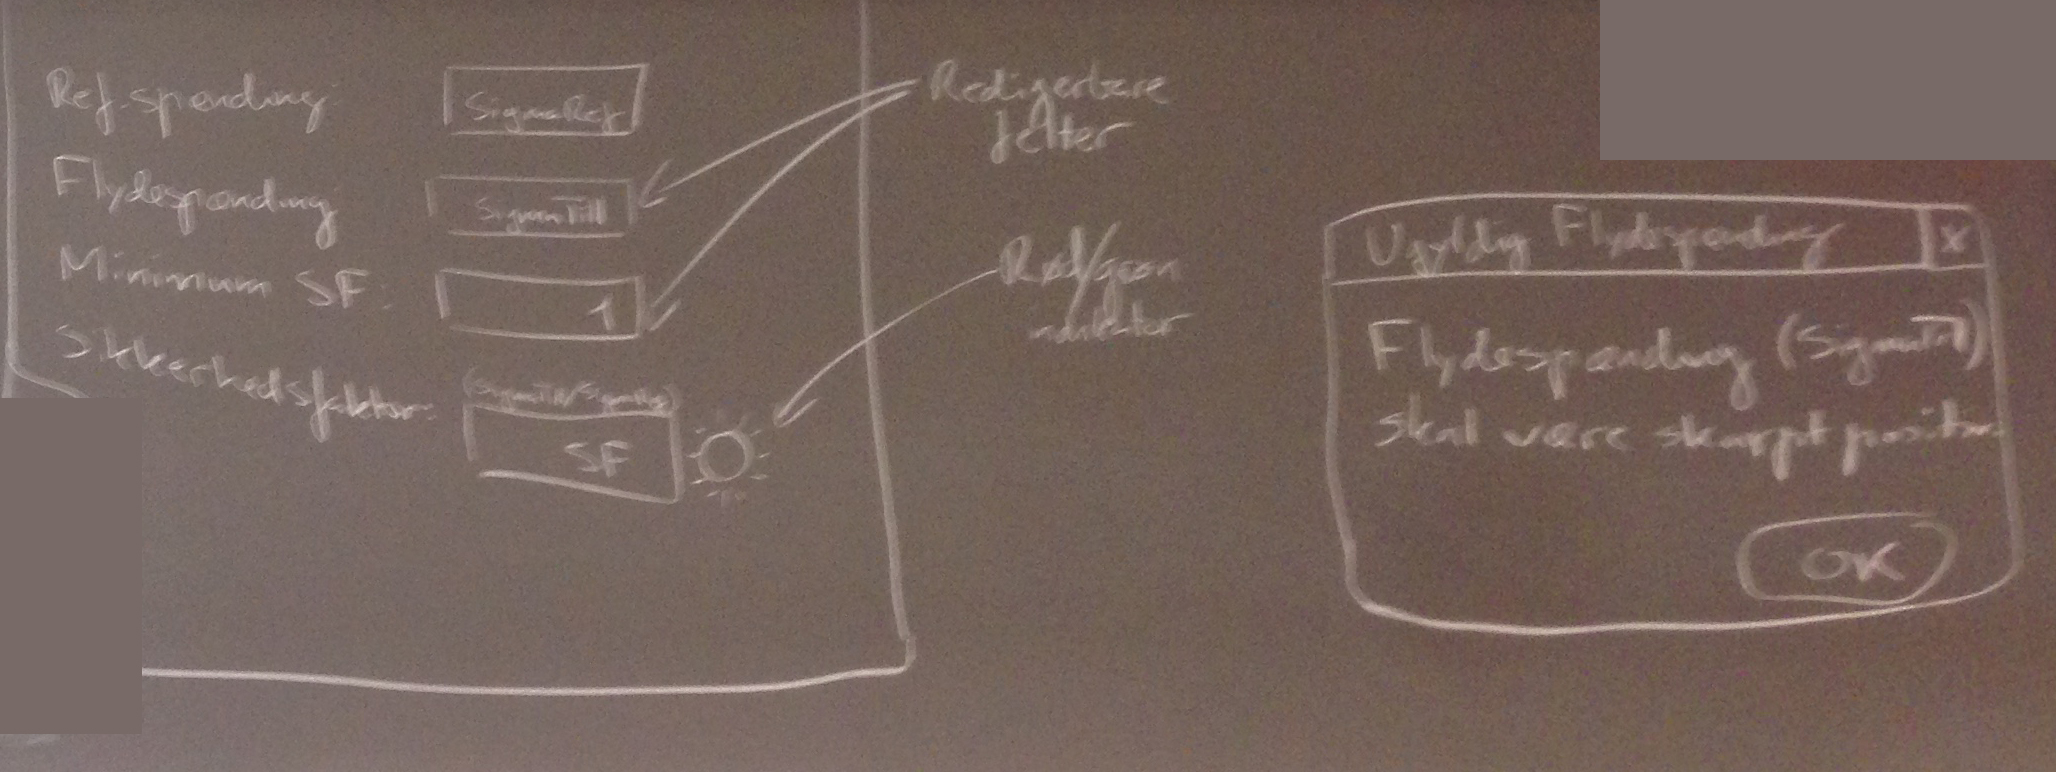 Ref.spænding:
SigmaRef
Flydespænding
SigmaTill
Minimum SF:
1
Sikkerhedsfaktor:
(SigmaTill/SigmaRef)
SF
Redigerbare
felter
Rød/grøn
indikator
Ugyldig Flydespænding
x
Flydespænding (SigmaTill)
skal være skarpt positiv
OK